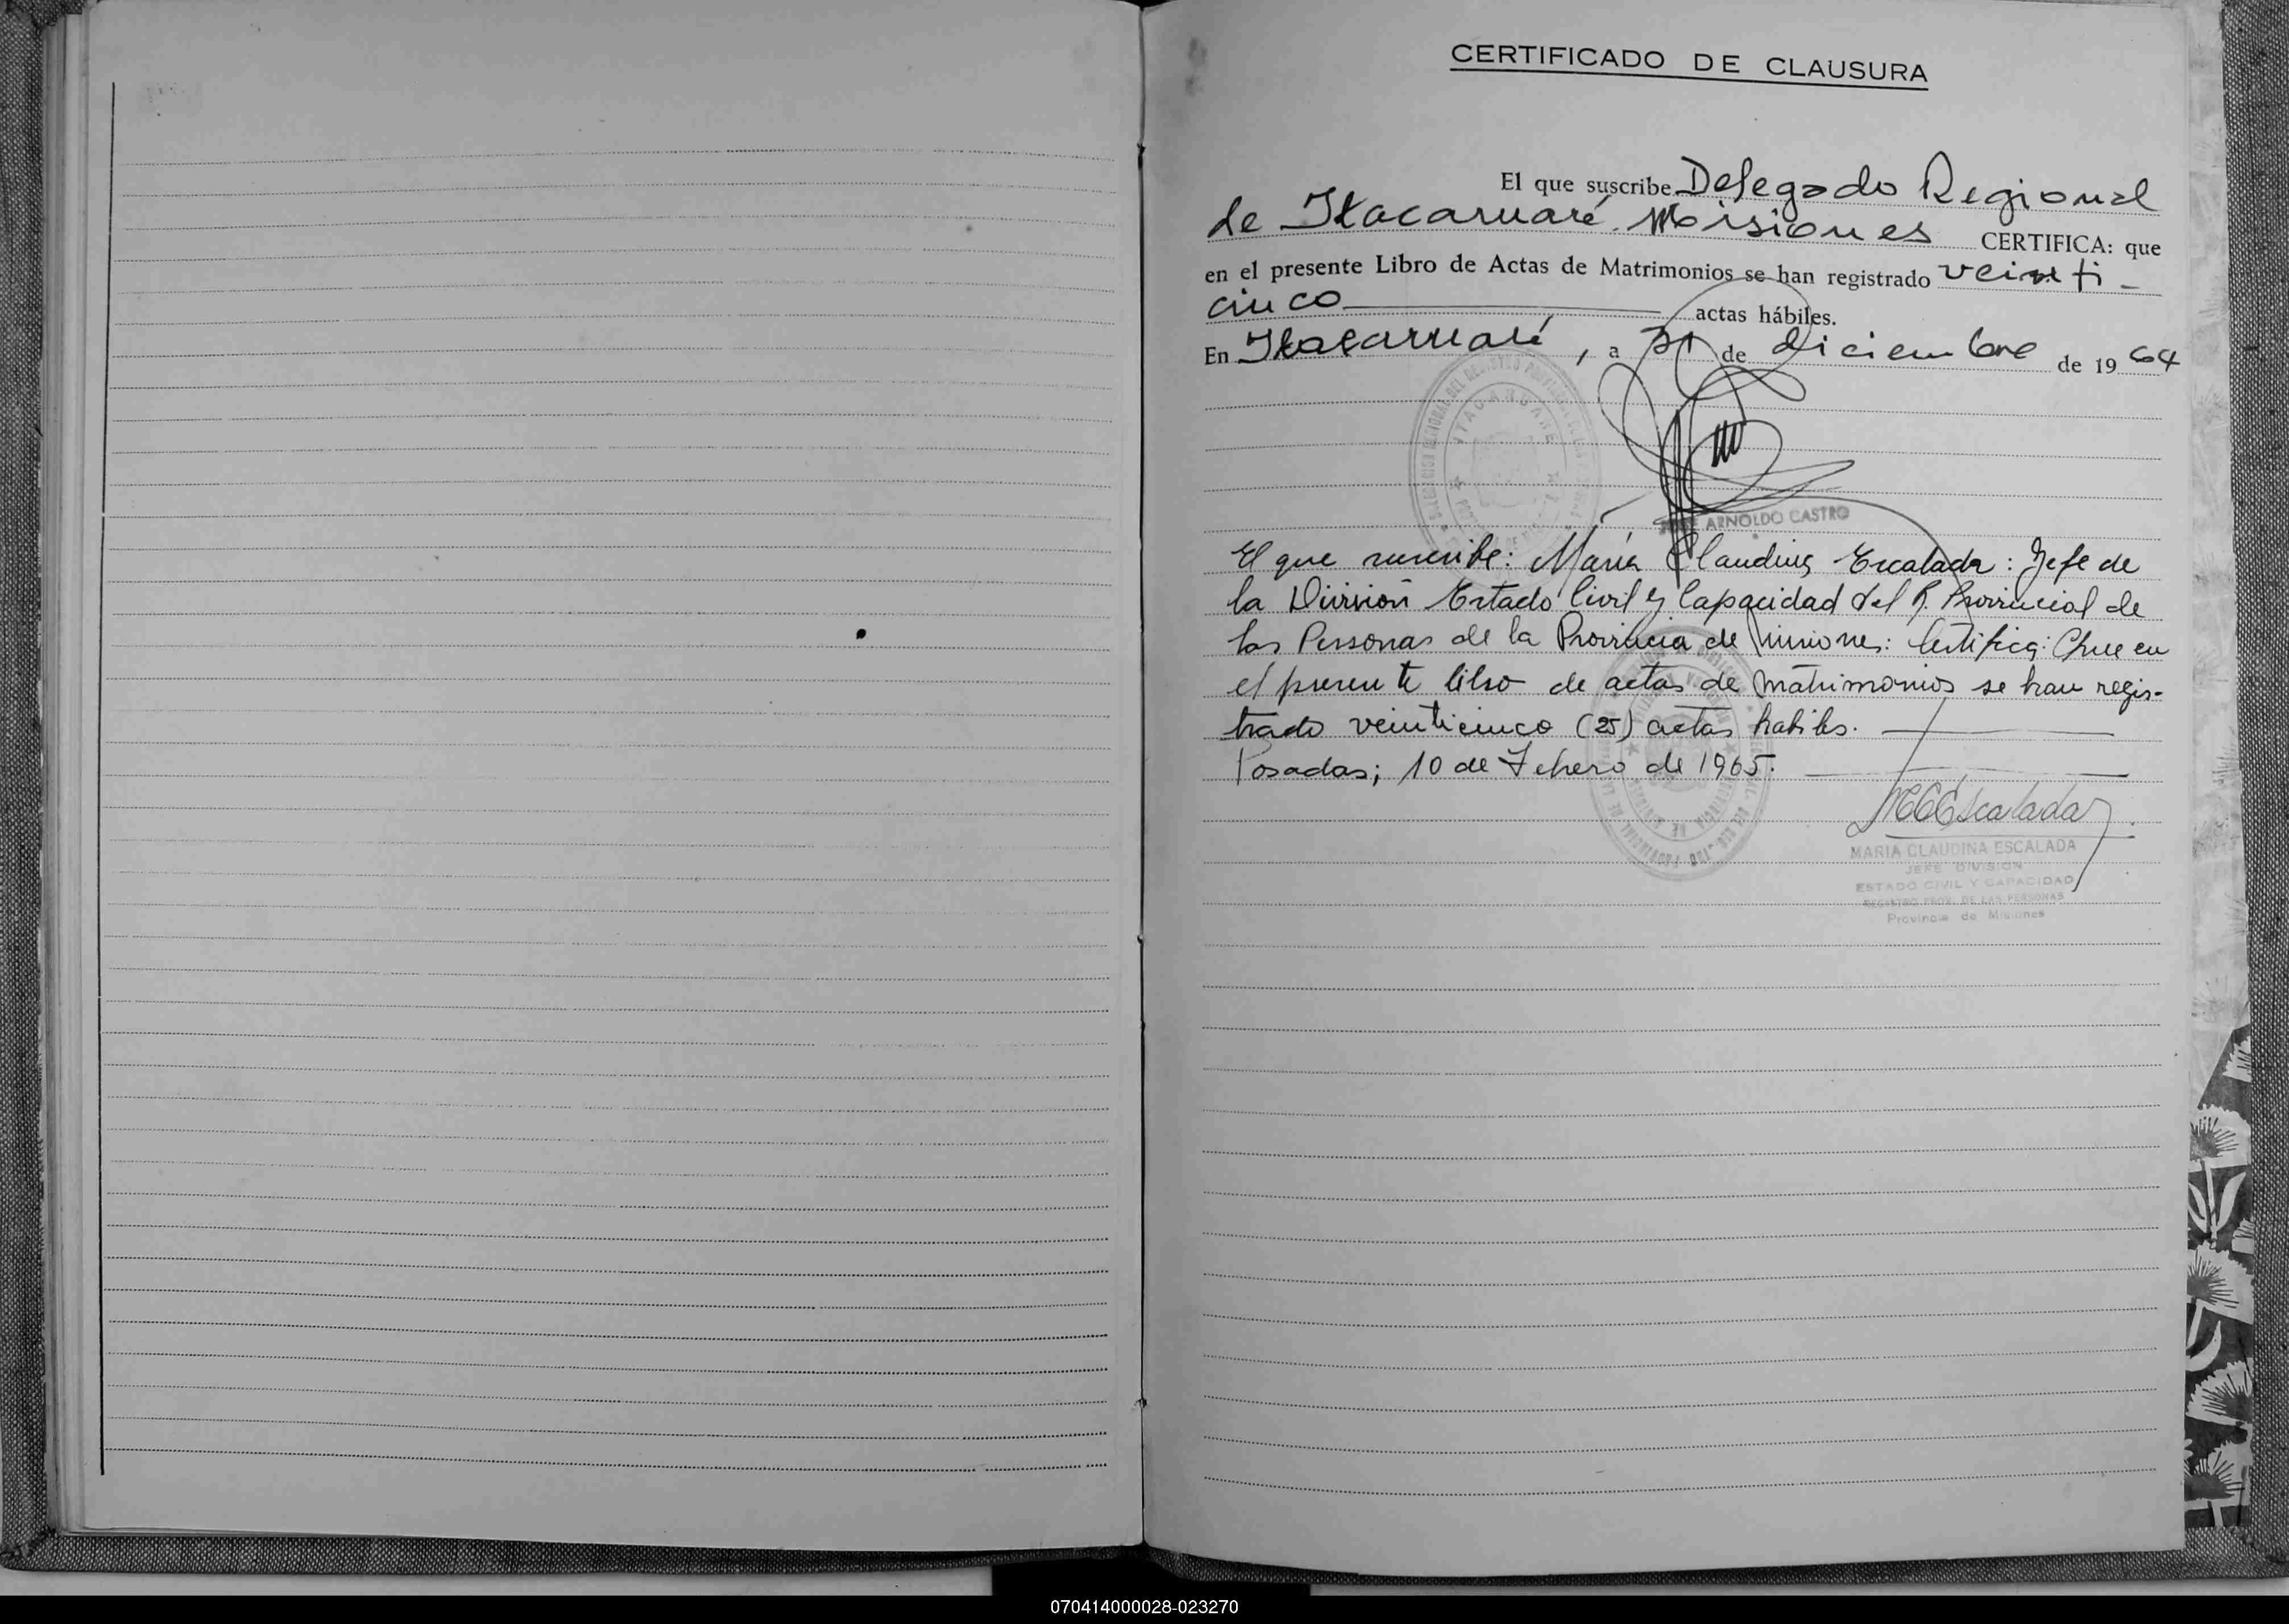 CERTIFICADO DE CLAUSURA
El que suscribe Delegado Regional
de Itacaruaré. Misiones CERTIFICA: que
en el presente Libro de Actas de Matrimonios se han registrado veinti-
cinco actas hábiles.
En Itacaruaré, a 31 de diciembre de 1964
ITACARUARE
JOSE ARNOLDO CASTRO
El que suscribe: María Claudina Escalada: Jefe de
la División Estado Civil y Capacidad del R. Provincial de
las Personas de la Provincia de Misiones: Certifica: Que en
el presente libro de actas de matrimonios se han regis-
trado veinticinco (25) actas habiles.
Posadas; 10 de Febrero de 1965.
MCEscalada
MARIA CLAUDINA ESCALADA
JEFE DIVISION
ESTADO CIVIL Y CAPACIDAD
REGISTRO PROV. DE LAS PERSONAS
Provincia de Misiones
070414000028-023270